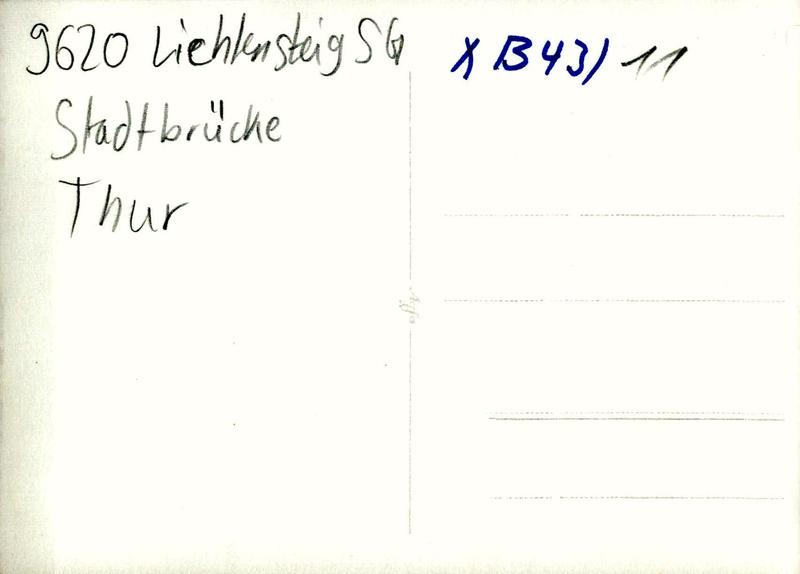 9620 Liehtensteig SG
Stadtbrücke
Thur
X B 43/ 11
Agfa